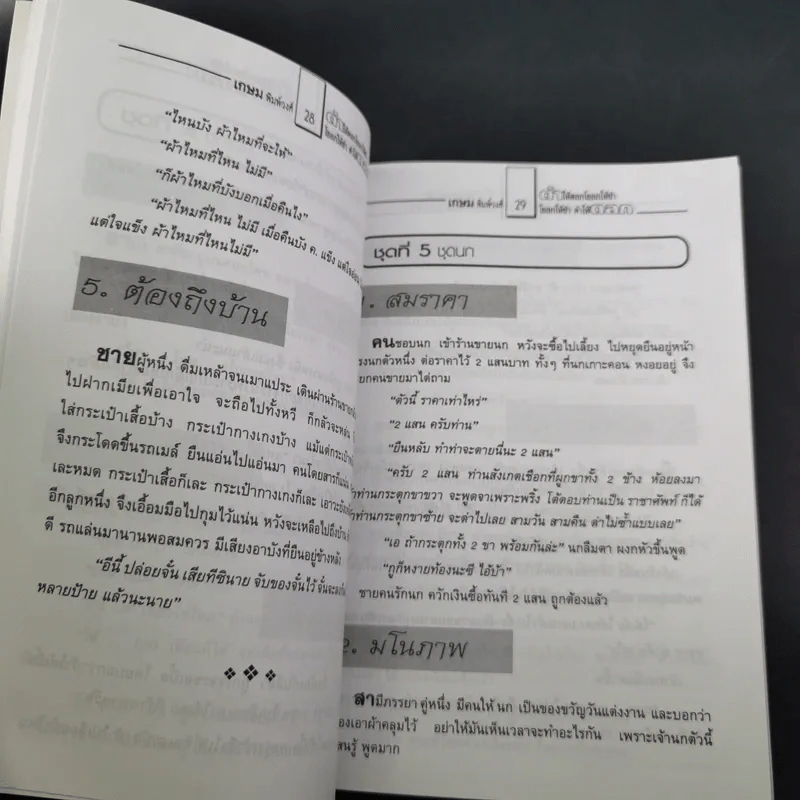 เกษม พิมพ์วงศ์
28
"ไหนบัง ผ้าไหมที่จะให้"
"ผ้าไหมที่ไหน ไม่มี"
"ก็ผ้าไหมที่บังบอกเมื่อคืนไง"
"ผ้าไหมที่ไหน ไม่มี เมื่อคืนบัง ค. แข็ง
แต่ใจแข็ง ผ้าไหมที่ไหนไม่มี"
5. ต้องถึงบ้าน
ชายผู้หนึ่ง ดื่มเหล้าจนเมาแประ เดินผ่าน
ไปฝากเมียเพื่อเอาใจ จะถือไปทั้งหวี ก็กลัวจะหล่น
ใส่กระเป๋าเสื้อบ้าง กระเป๋ากางเกงบ้าง
จึงกระโดดขึ้นรถเมล์ ยืนแอ่นไปแอ่นมา คนโดยสารก็แน่น
เละหมด กระเป๋าเสื้อก็เละ กระเป๋ากางเกงก็เละ
อีกลูกหนึ่ง จึงเอื้อมมือไปกุมไว้แน่น หวังจะเหลือไปถึงบ้าน
ดี รถแล่นมานานพอสมควร มีเสียงอาบังที่ยืนอยู่ข้างหลัง
"อีนี้ ปล่อยจั้น เสียทีซินาย จับของจั้นไว้
หลายป้าย แล้วนะนาย"
เกษม พิมพ์วงศ์
29
ชุดที่ 5 ชุดนก
1. สมราคา
คนชอบนก เข้าร้านขายนก หวังจะซื้อไปเลี้ยง ไปหยุดยืนอยู่หน้า
กรงนกตัวหนึ่ง ต่อราคาไว้ 2 แสนบาท ทั้งๆ ที่นกเกาะคอน หงอยอยู่ จึง
เรียกคนขายมาไต่ถาม
"ตัวนี้ ราคาเท่าไหร่"
"2 แสน ครับท่าน"
"ยืนหลับ ทำท่าจะตายนี่นะ 2 แสน"
"ครับ 2 แสน ท่านสังเกตเชือกที่ผูกขาทั้ง 2 ข้าง ห้อยลงมา
ถ้าท่านกระตุกขาขวา จะพูดจาเพราะพริ้ง โต้ตอบท่านเป็น ราชาศัพท์ ก็ได้
ถ้าท่านกระตุกขาซ้าย จะด่าไปเลย สามวัน สามคืน ด่าไม่ซ้ำแบบเลย"
"เอ ถ้ากระตุกทั้ง 2 ขา พร้อมกันล่ะ" นกลืมตา ผงกหัวขึ้นพูด
"กูก็หงายท้องนะซี ไอ้บ้า"
ชายคนรักนก ควักเงินซื้อทันที 2 แสน ถูกต้องแล้ว
2. มโนภาพ
สามีภรรยา คู่หนึ่ง มีคนให้ นก เป็นของขวัญวันแต่งงาน และบอกว่า
ต้องเอาผ้าคลุมไว้ อย่าให้มันเห็นเวลาจะทำอะไรกัน เพราะเจ้านกตัวนี้
แสนรู้ พูดมาก